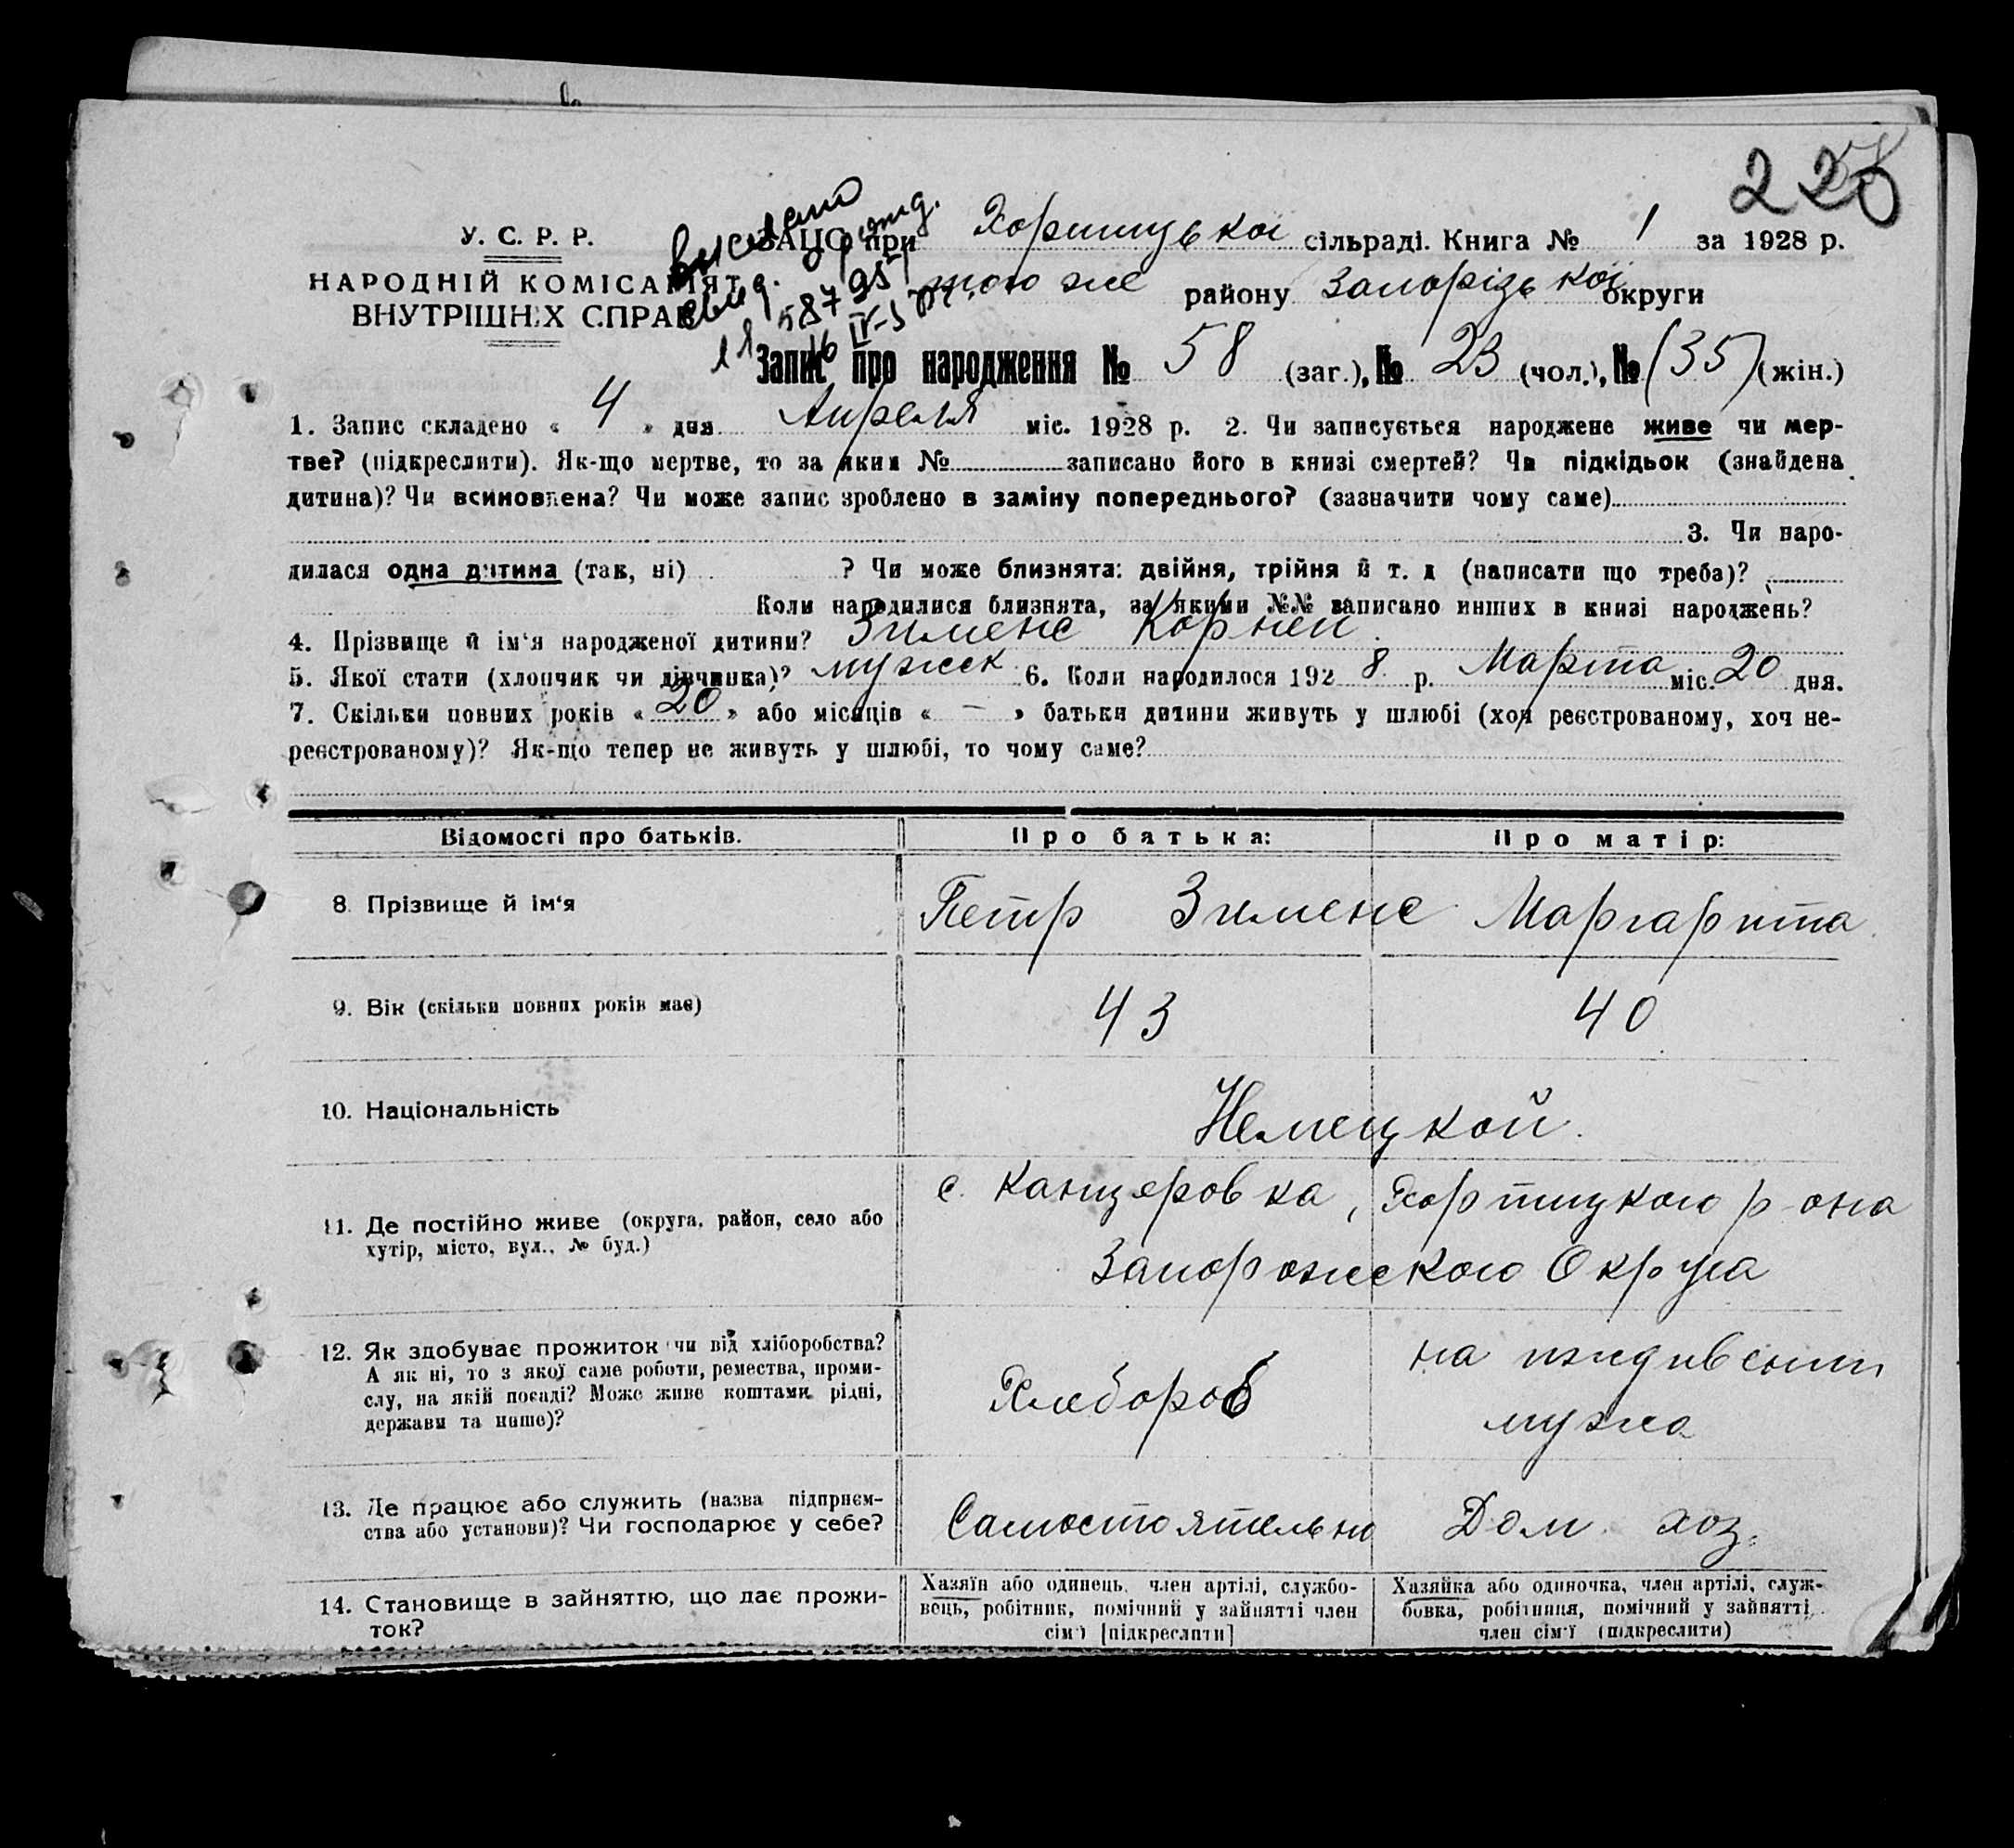 228
У. С. Р. Р.
НАРОДНІЙ КОМІСАРІЯТ
ВНУТРІШНІХ СПРАВ
ЗАЦС при Хортицької сільраді. Книга № 1 за 1928 р.
того же району Запорізької округи
Запис про народження № 58 (заг.), № 23 (чол.), № (35) (жін.)
1. Запис складено « 4 » дня Апреля міс. 1928 р. 2. Чи записується народжене живе чи мер-
тве? (підкреслити). Як-що мертве, то за яким № записано його в книзі смертей? Чи підкідьок (знайдена
дитина)? Чи всиновлена? Чи може запис зроблено в заміну попереднього? (зазначити чому саме)
3. Чи наро-
дилася одна дитина (так, ні) ? Чи може близнята: двійня, трійня й т. д (написати що треба)?
Коли народилися близнята, за якими №№ записано инших в книзі народжень?
4. Прізвище й ім'я народженої дитини? Зименс Корней
5. Якої стати (хлопчик чи дівчинка)? мужск 6. Коли народилося 1928 р. Марта міс. 20 дня.
7. Скільки повних років « 20 » або місяців « — » батьки дитини живуть у шлюбі (хоч реєстрованому, хоч не-
реєстрованому)? Як-що тепер не живуть у шлюбі, то чому саме?
Відомості про батьків. Про батька: Про матір:
8. Прізвище й ім'я Петр Зименс Маргарита
9. Вік (скільки повних років має) 43 40
10. Національність Немецкой.
с. Канцеровка, Хортицкого р-она
11. Де постійно живе (округа, район, село або
хутір, місто, вул., № буд.) Запорожского Округа
12. Як здобуває прожиток чи від хліборобства? на иждивении
А як ні, то з якої саме роботи, ремества, проми-
слу, на якій посаді? Може живе коштами рідні, Хлебороб
держави та инше)? мужа
13. Де працює або служить (назва підприєм-
ства або установи)? Чи господарює у себе? Самостоятельно Дом. хоз.
14. Становище в зайняттю, що дає прожи-
ток?
Хазяїн або одинець, член артілі, службо-
вець, робітник, помічний у зайнятті член
сім'ї [підкреслити]
Хазяйка або одиночка, член артілі, служ-
бовка, робітниця, помічний у зайнятті
член сім'ї (підкреслити)